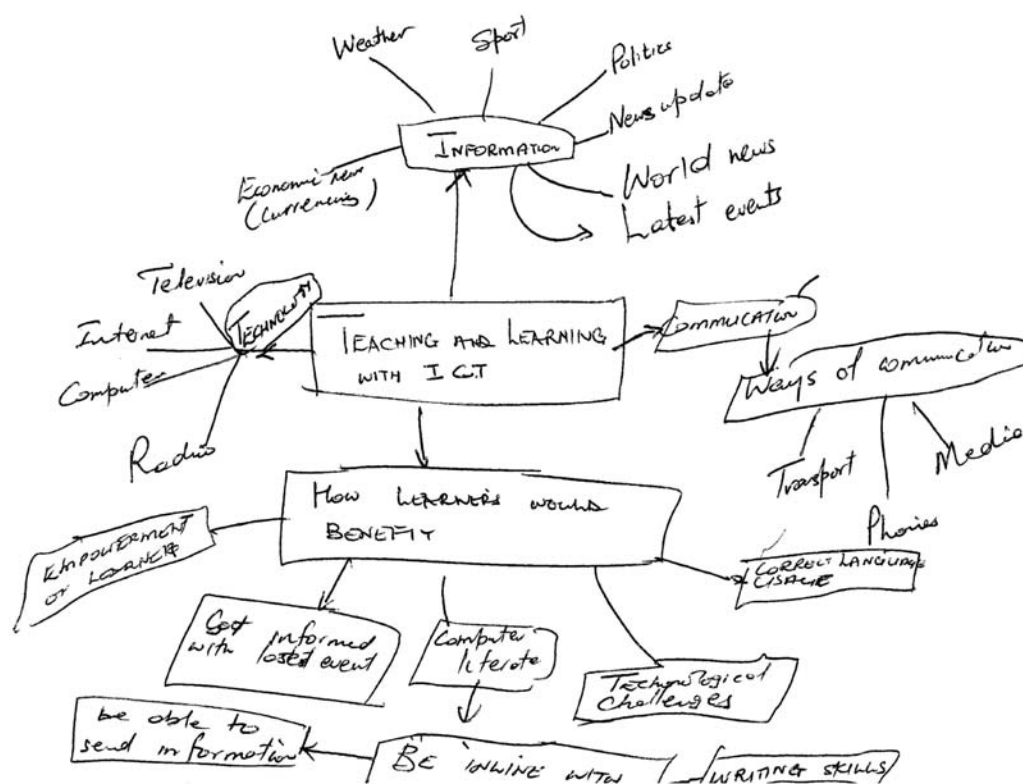 Weather
Sport
Politics
News update
INFORMATION
World news
Latest events
Economic news
(currencies)
Television
TECHNOLOGY
Internet
Computer
Radio
TEACHING AND LEARNING
WITH ICT
COMMUCATION
Ways of communication
Transport
Media
Phones
HOW LEARNERS WOULD
BENEFIT
EMPOWERMENT
OF LEARNERS
CORRECT LANGUAGE
USAGE
Get informed
with event
Computer
literate
Technological
Challenges
be able to
send information
BE INLINE WITH
WRITING SKILLS